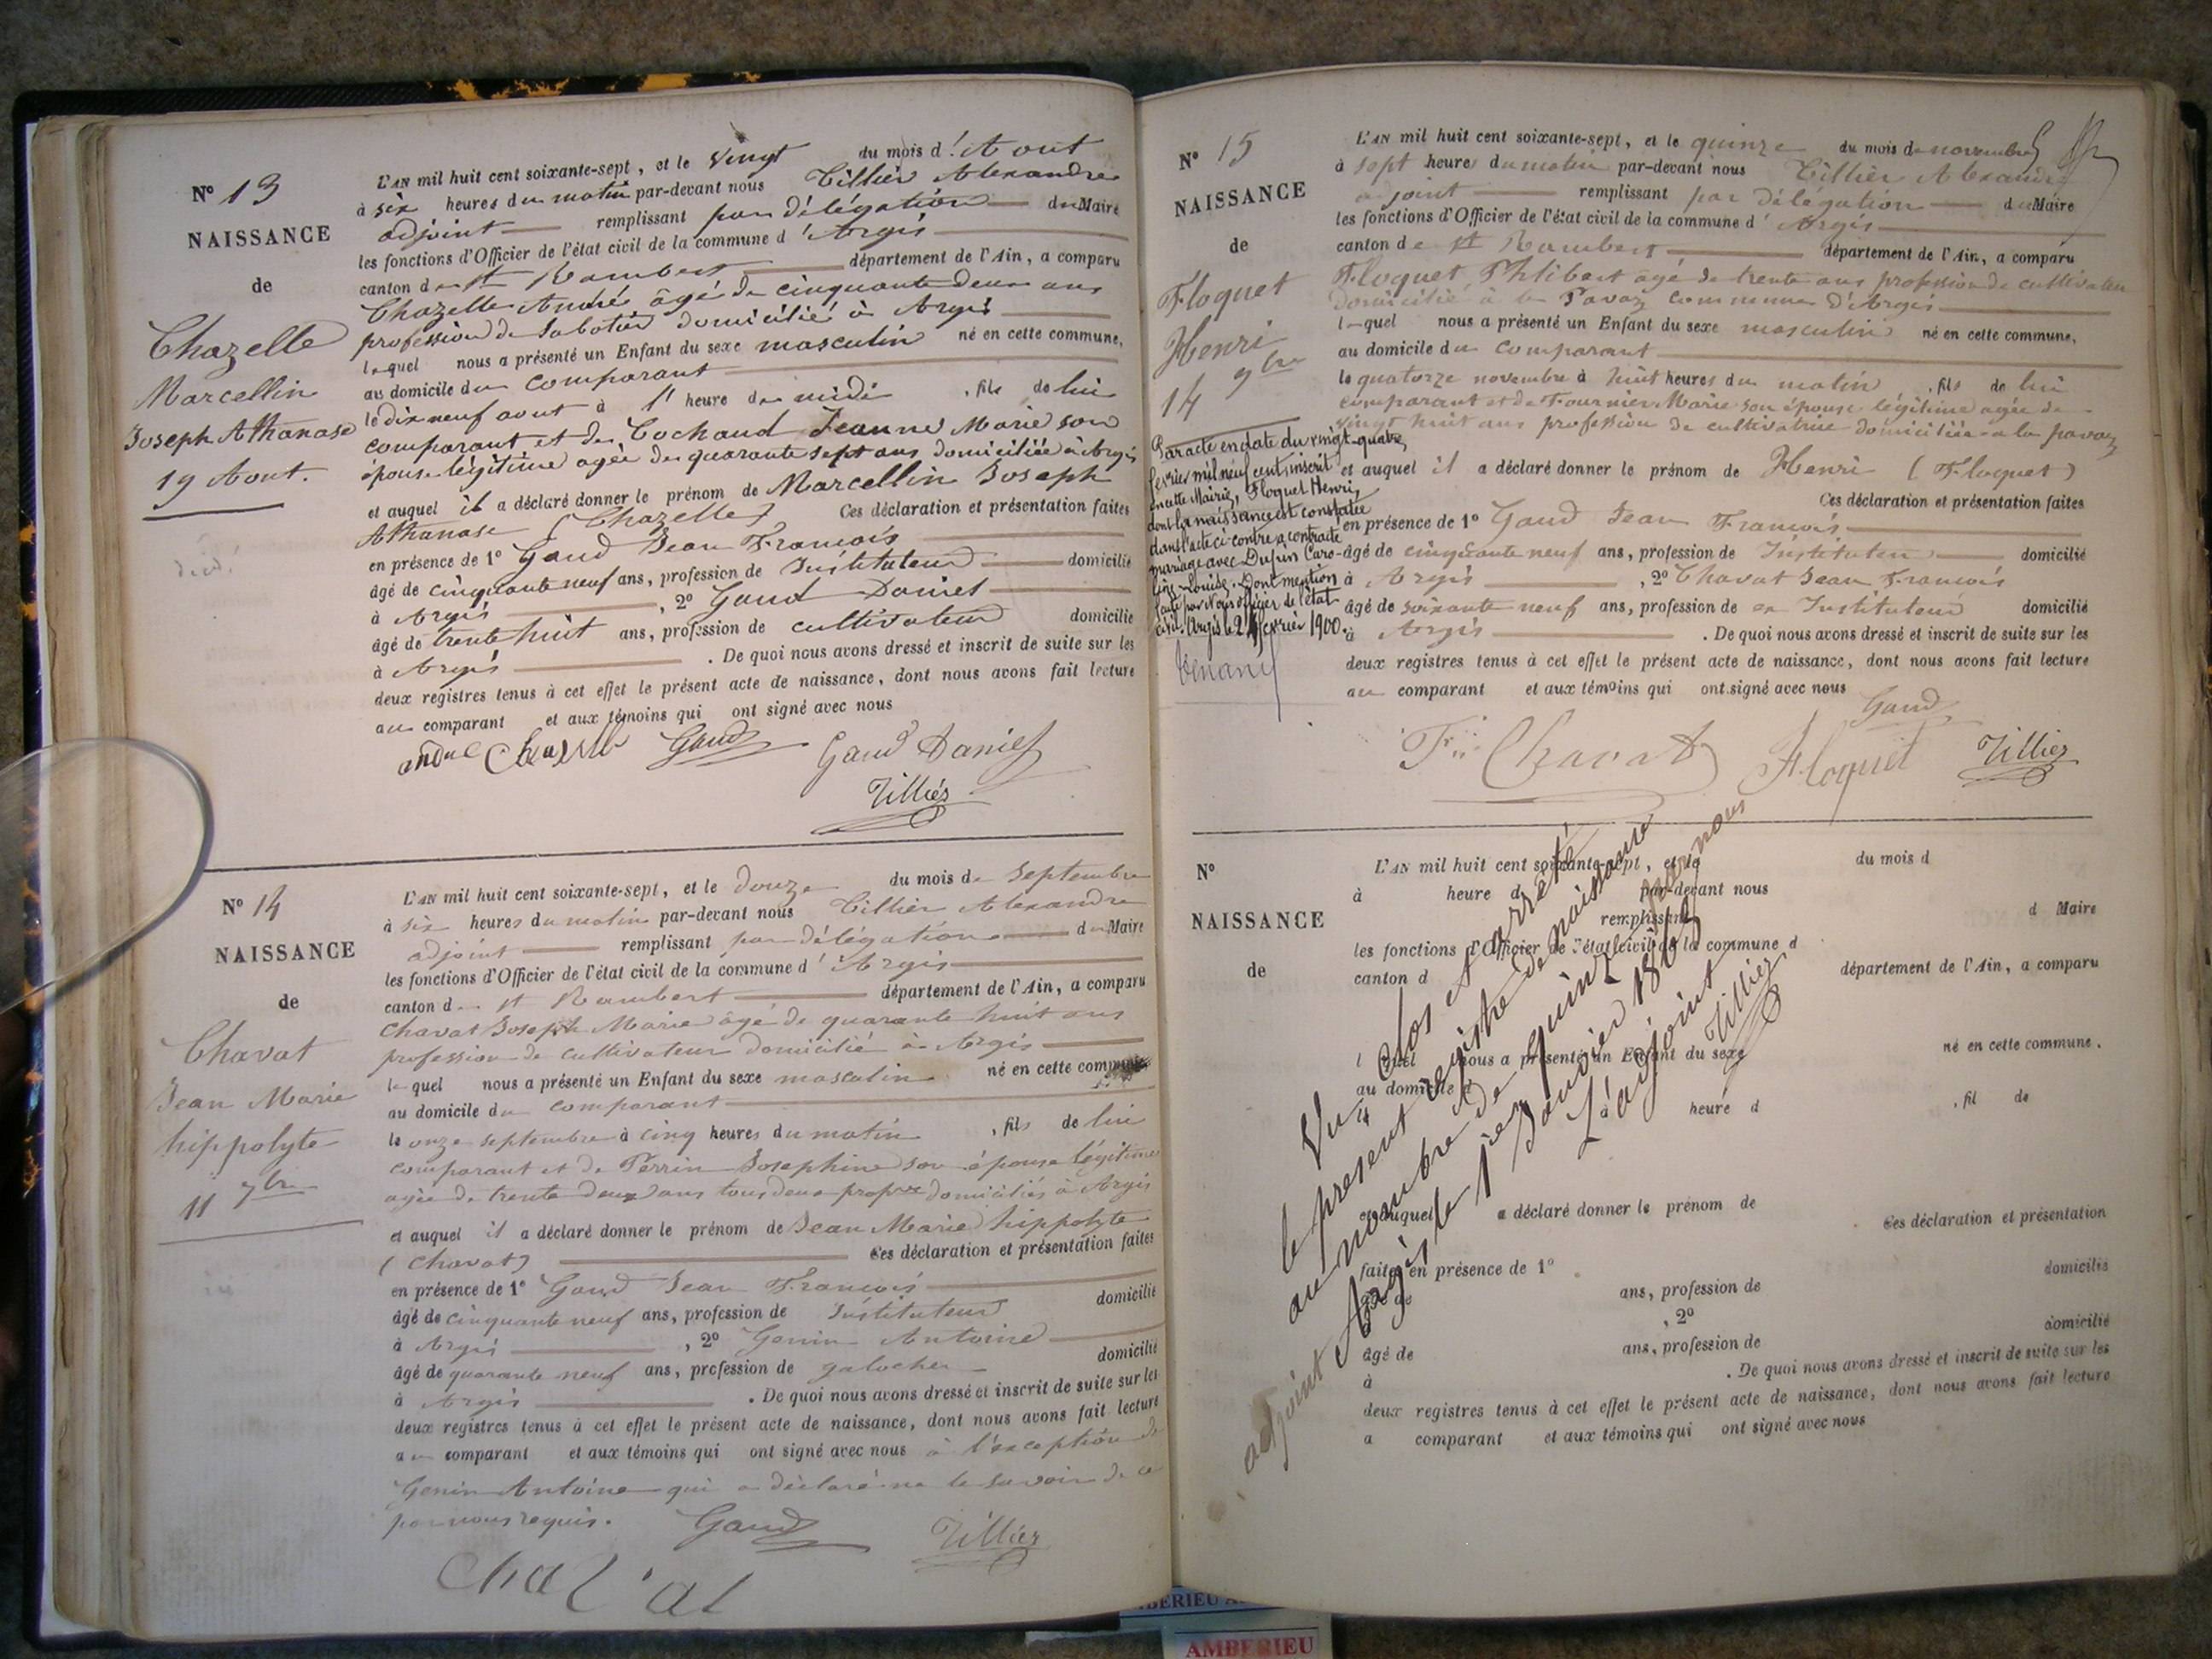 N° 13
NAISSANCE
de
Chazelle
Marcellin
Joseph Athanase
19 Aout.
L'AN mil huit cent soixante-sept, et le vingt du mois d'Aout
à six heures du matin par-devant nous Tillier Alexandre
adjoint remplissant par délégation du Maire
les fonctions d'Officier de l'état civil de la commune d'Argis
canton de St Rambert département de l'Ain, a comparu
Chazelle André âgé de cinquante deux ans
profession de Sabotier domicilié à Argis
lequel nous a présenté un Enfant du sexe masculin né en cette commune,
au domicile du comparant
le dix neuf aout à l' heure de midi, fils de lui
comparant et de Cochaud Jeanne Marie son
épouse légitime agée de quarante sept ans domiciliée à Argis
et auquel il a déclaré donner le prénom de Marcellin Joseph
Athanase (Chazelle) Ces déclaration et présentation faites
en présence de 1° Gaud Jean François
âgé de cinquante neuf ans, profession de Instituteur domicilié
à Argis, 2° Gaud Daniel
âgé de trente huit ans, profession de cultivateur domicilié
à Argis. De quoi nous avons dressé et inscrit de suite sur les
deux registres tenus à cet effet le présent acte de naissance, dont nous avons fait lecture
au comparant et aux témoins qui ont signé avec nous
Gaud Gaud Daniel
Tillier
N° 14
NAISSANCE
de
Chavat
Jean Marie
hippolyte
11 7bre
L'AN mil huit cent soixante-sept, et le douze du mois de Septembre
à six heures du matin par-devant nous Tillier Alexandre
adjoint remplissant par délégation du Maire
les fonctions d'Officier de l'état civil de la commune d'Argis
canton de St Rambert département de l'Ain, a comparu
Chavat Joseph Marie âgé de quarante huit ans
profession de cultivateur domicilié à Argis
lequel nous a présenté un Enfant du sexe masculin né en cette commune
au domicile du comparant
le onze septembre à cinq heures du matin, fils de lui
comparant et de Perrin Josephine son épouse légitime
agée de trente deux ans tous deux propre domiciliés à Argis
et auquel il a déclaré donner le prénom de Jean Marie hippolyte
(Chavat) Ces déclaration et présentation faites
en présence de 1° Gaud Jean François
âgé de cinquante neuf ans, profession de Instituteur domicilié
à Argis, 2° Genin Antoine
âgé de quarante neuf ans, profession de galocher domicilié
à Argis. De quoi nous avons dressé et inscrit de suite sur les
deux registres tenus à cet effet le présent acte de naissance, dont nous avons fait lecture
au comparant et aux témoins qui ont signé avec nous à l'exception de
Genin Antoine qui a déclaré ne le savoir de ce
par nous requis. Gaud Tillier
Chavat
N° 15
NAISSANCE
de
Floquet
Henri
14 9bre
Par acte en date du vingt-quatre
février mil neuf cent, inscrit
en cette Mairie, Floquet Henri,
dont la naissance est constatée
dans l'acte ci-contre a contracté
mariage avec Dupin Caro-
line-Louise. Dont mention
faite par Nous officier de l'état
civil. Argis le 24 février 1900.
L'AN mil huit cent soixante-sept, et le quinze du mois de novembre
à sept heures du matin par-devant nous Tillier Alexandre
adjoint remplissant par délégation du Maire
les fonctions d'Officier de l'état civil de la commune d'Argis
canton de St Rambert département de l'Ain, a comparu
Floquet Philibert âgé de trente ans profession de cultivateur
domicilié à la Pavaz commune d'Argis
lequel nous a présenté un Enfant du sexe masculin né en cette commune,
au domicile du comparant
le quatorze novembre à huit heures du matin, fils de lui
comparant et de Fournier Marie son épouse légitime agée de
vingt huit ans profession de cultivatrice domiciliée a la pavaz
et auquel il a déclaré donner le prénom de Henri (Floquet)
Ces déclaration et présentation faites
en présence de 1° Gaud Jean François
âgé de cinquante neuf ans, profession de Instituteur domicilié
à Argis, 2° Chavat Jean François
âgé de soixante neuf ans, profession de ex Instituteur domicilié
à Argis. De quoi nous avons dressé et inscrit de suite sur les
deux registres tenus à cet effet le présent acte de naissance, dont nous avons fait lecture
au comparant et aux témoins qui ont signé avec nous
Gaud
Chavat Floquet Tillier
N°
NAISSANCE
de
L'AN mil huit cent soixante-sept, et le du mois d
à heure d par-devant nous
remplissant d Maire
les fonctions d'Officier de l'état civil de la commune d
canton d département de l'Ain, a comparu
l quel nous a présenté un Enfant du sexe né en cette commune.
au domicile d
l à heure d, fil de
et auquel a déclaré donner le prénom de
Ces déclaration et présentation
faites en présence de 1°
âgé de ans, profession de domicilié
, 2°
âgé de ans, profession de domicilié
à. De quoi nous avons dressé et inscrit de suite sur les
deux registres tenus à cet effet le présent acte de naissance, dont nous avons fait lecture
a comparant et aux témoins qui ont signé avec nous
Vu, Clos et arrêté
le présent registre de naissance
au nombre de quinze par nous
adjoint Argis le 1ier Janvier 1868
L'adjoint
Tillier
AMBERIEU